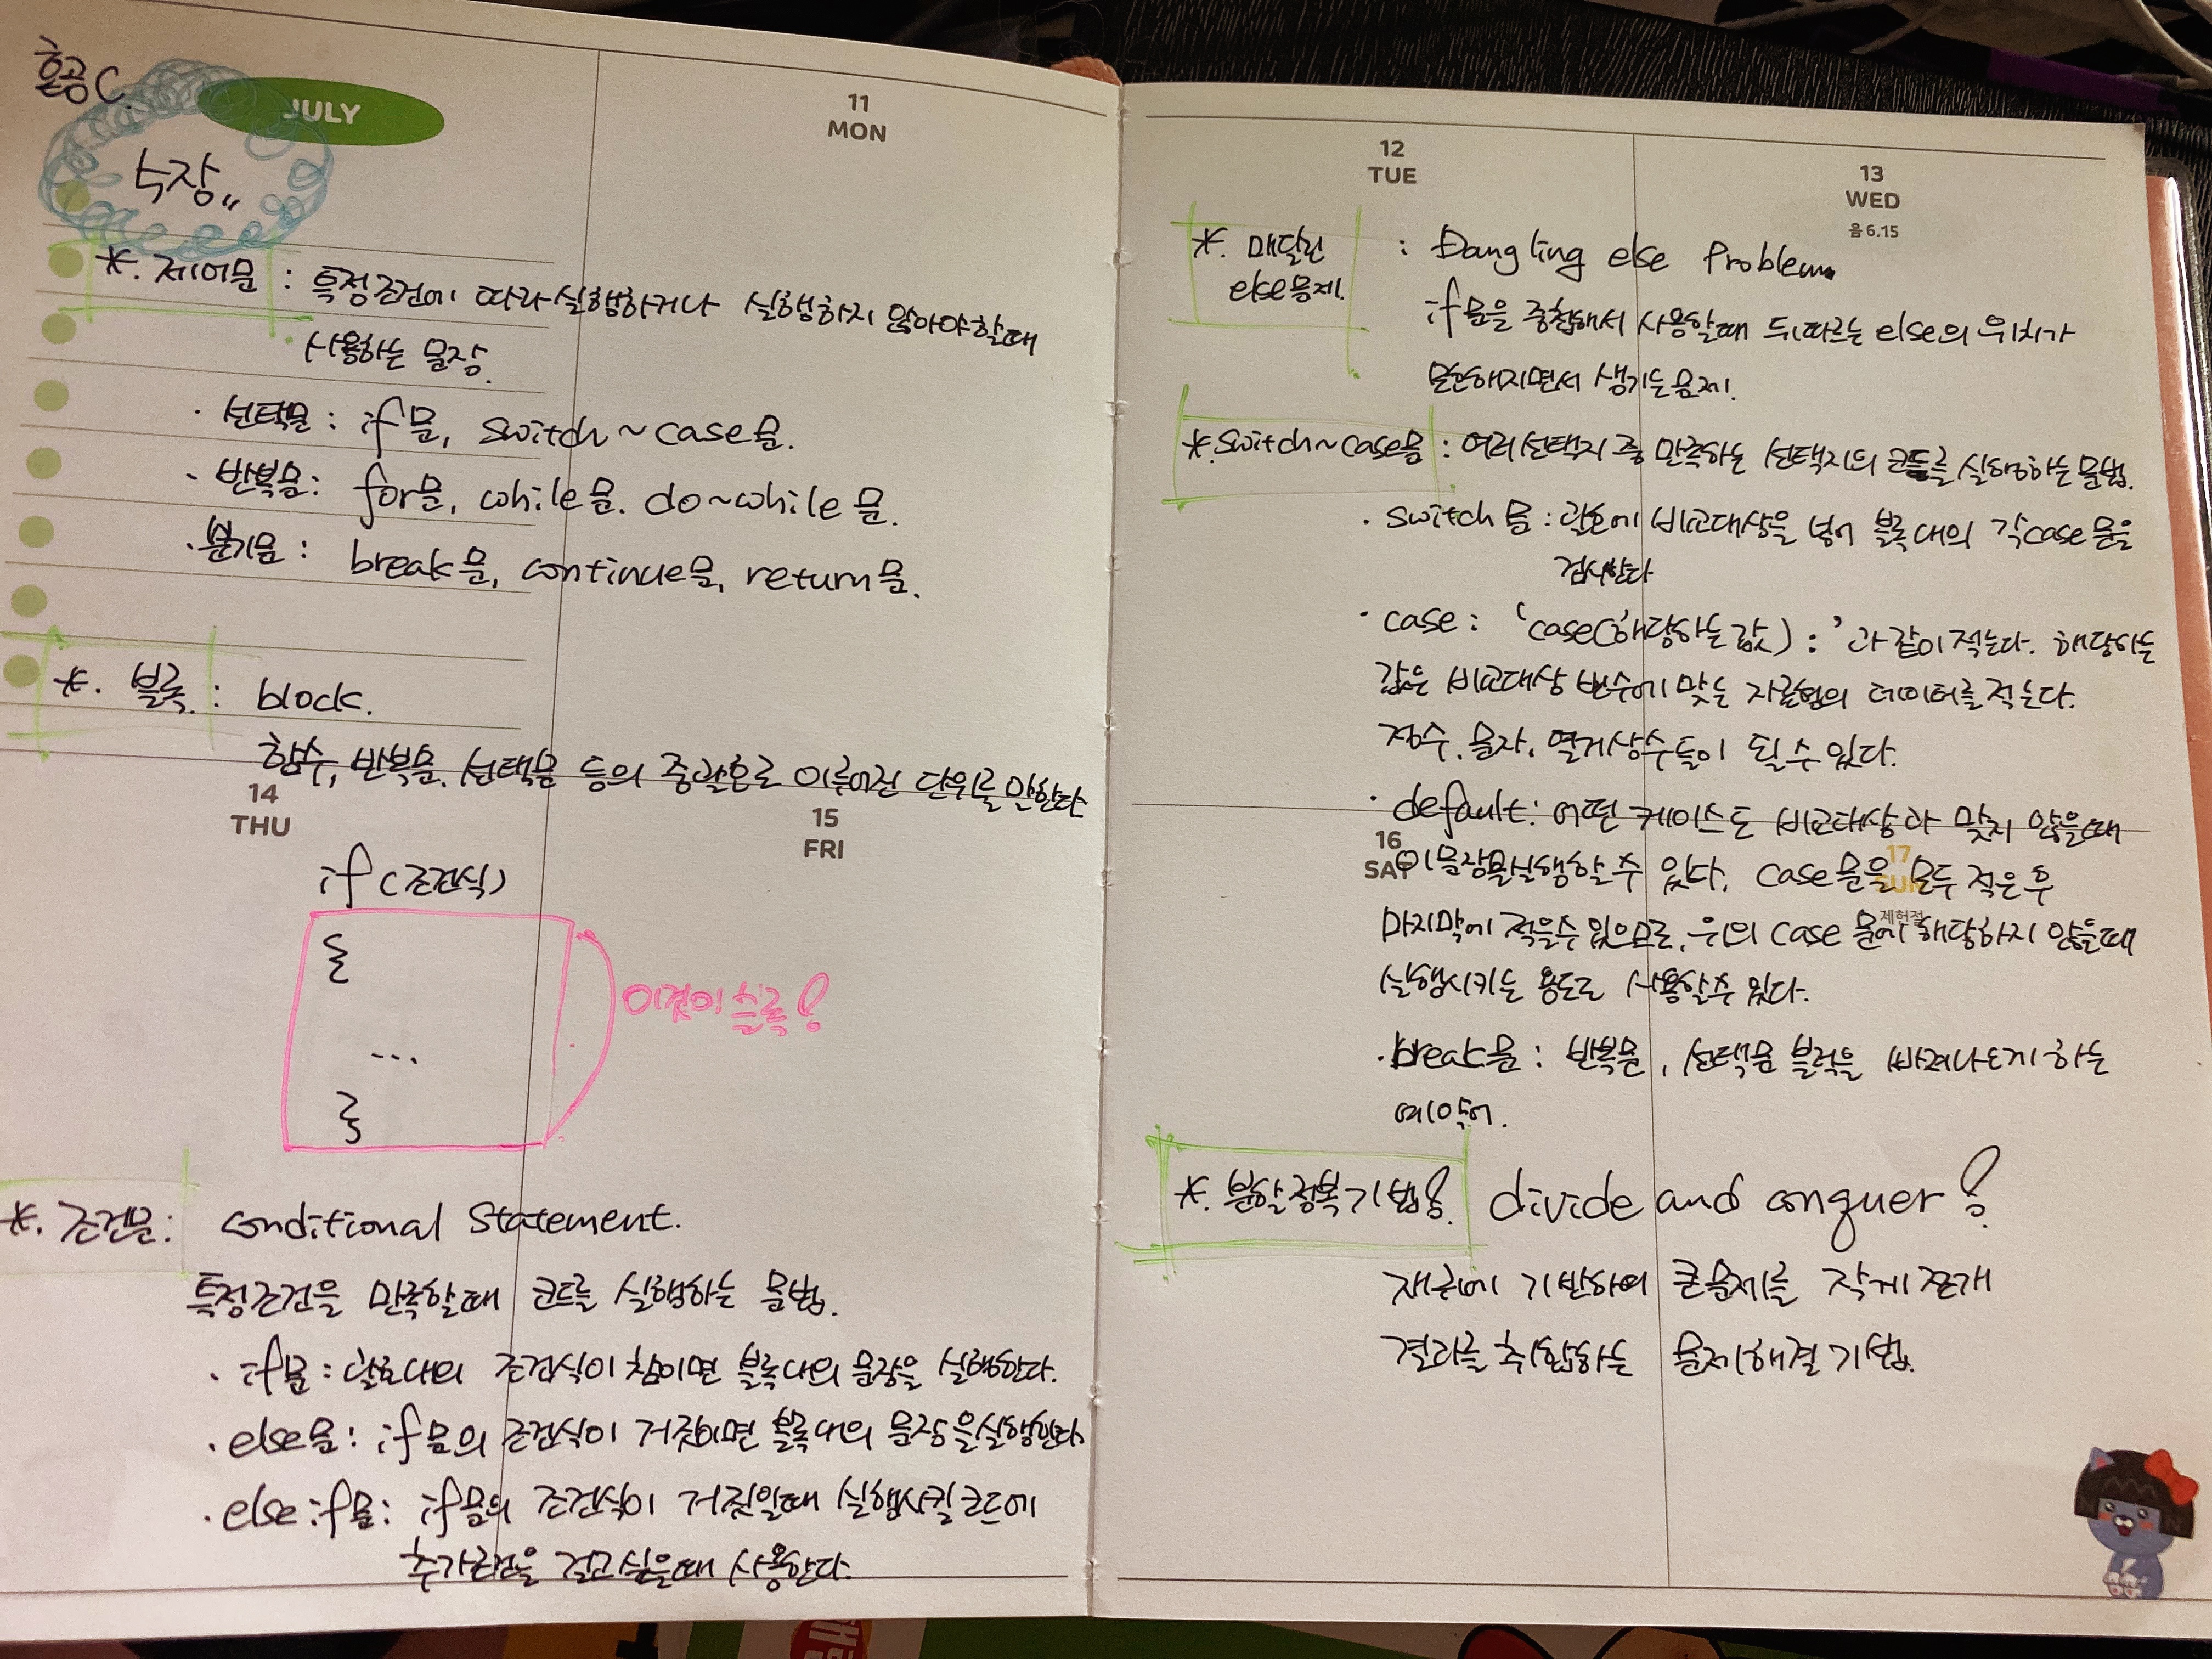 혼공C.
JULY
4장.,
11
MON
*. 제어문 : 특정조건에 따라 실행하거나 실행하지 않아야할때
사용하는 문장.
· 선택문 : if문, switch~case문.
· 반복문 : for문, while문. do~while문.
· 분기문 : break문, continue문, return문.
*. 블록. : block.
함수, 반복문. 선택문 등의 중괄호로 이루어진 단위를 말한다
14
THU
15
FRI
if (조건식)
{
...
}
이것이 블록!
*. 조건문 : conditional Statement.
특정조건을 만족할때 코드를 실행하는 문법.
· if문 : 괄호내의 조건식이 참이면 블록내의 문장을 실행한다.
· else문 : if문의 조건식이 거짓이면 블록내의 문장을실행한다
· else if문 : if문의 조건식이 거짓일때 실행시킬코드에
추가조건을 걸고싶을때 사용한다.
12
TUE
13
WED
음 6.15
*. 매달린
else문제.
: Dangling else Problem.
if문을 중첩해서 사용할때 뒤따르는 else의 위치가
모호해지면서 생기는문제.
*. switch~case문 : 여러선택지 중 만족하는 선택지의 코드를 실행하는문법.
· switch문 : 괄호에 비교대상을 넣어 블록내의 각case문을
검사한다
· case : 'case(해당하는값) : '과같이적는다. 해당하는
값은 비교대상 변수에 맞는 자료형의 데이터를적는다.
정수, 문자, 열거상수등이 될수있다.
· default : 어떤 케이스도 비교대상과 맞지 않을때
16
SAT
17
SUN
제헌절
이문장을실행할수 있다. case문을 모두 적은후
마지막에 적을수있으므로, 위의 case문에 해당하지 않을때
실행시키는 용도로 사용할수 있다.
· break문 : 반복문, 선택문 블럭을 빠져나오게하는
예약어.
*. 분할정복기법! divide and conquer!
재귀에 기반하여 큰문제를 작게쪼개
결과를취합하는 문제해결기법.